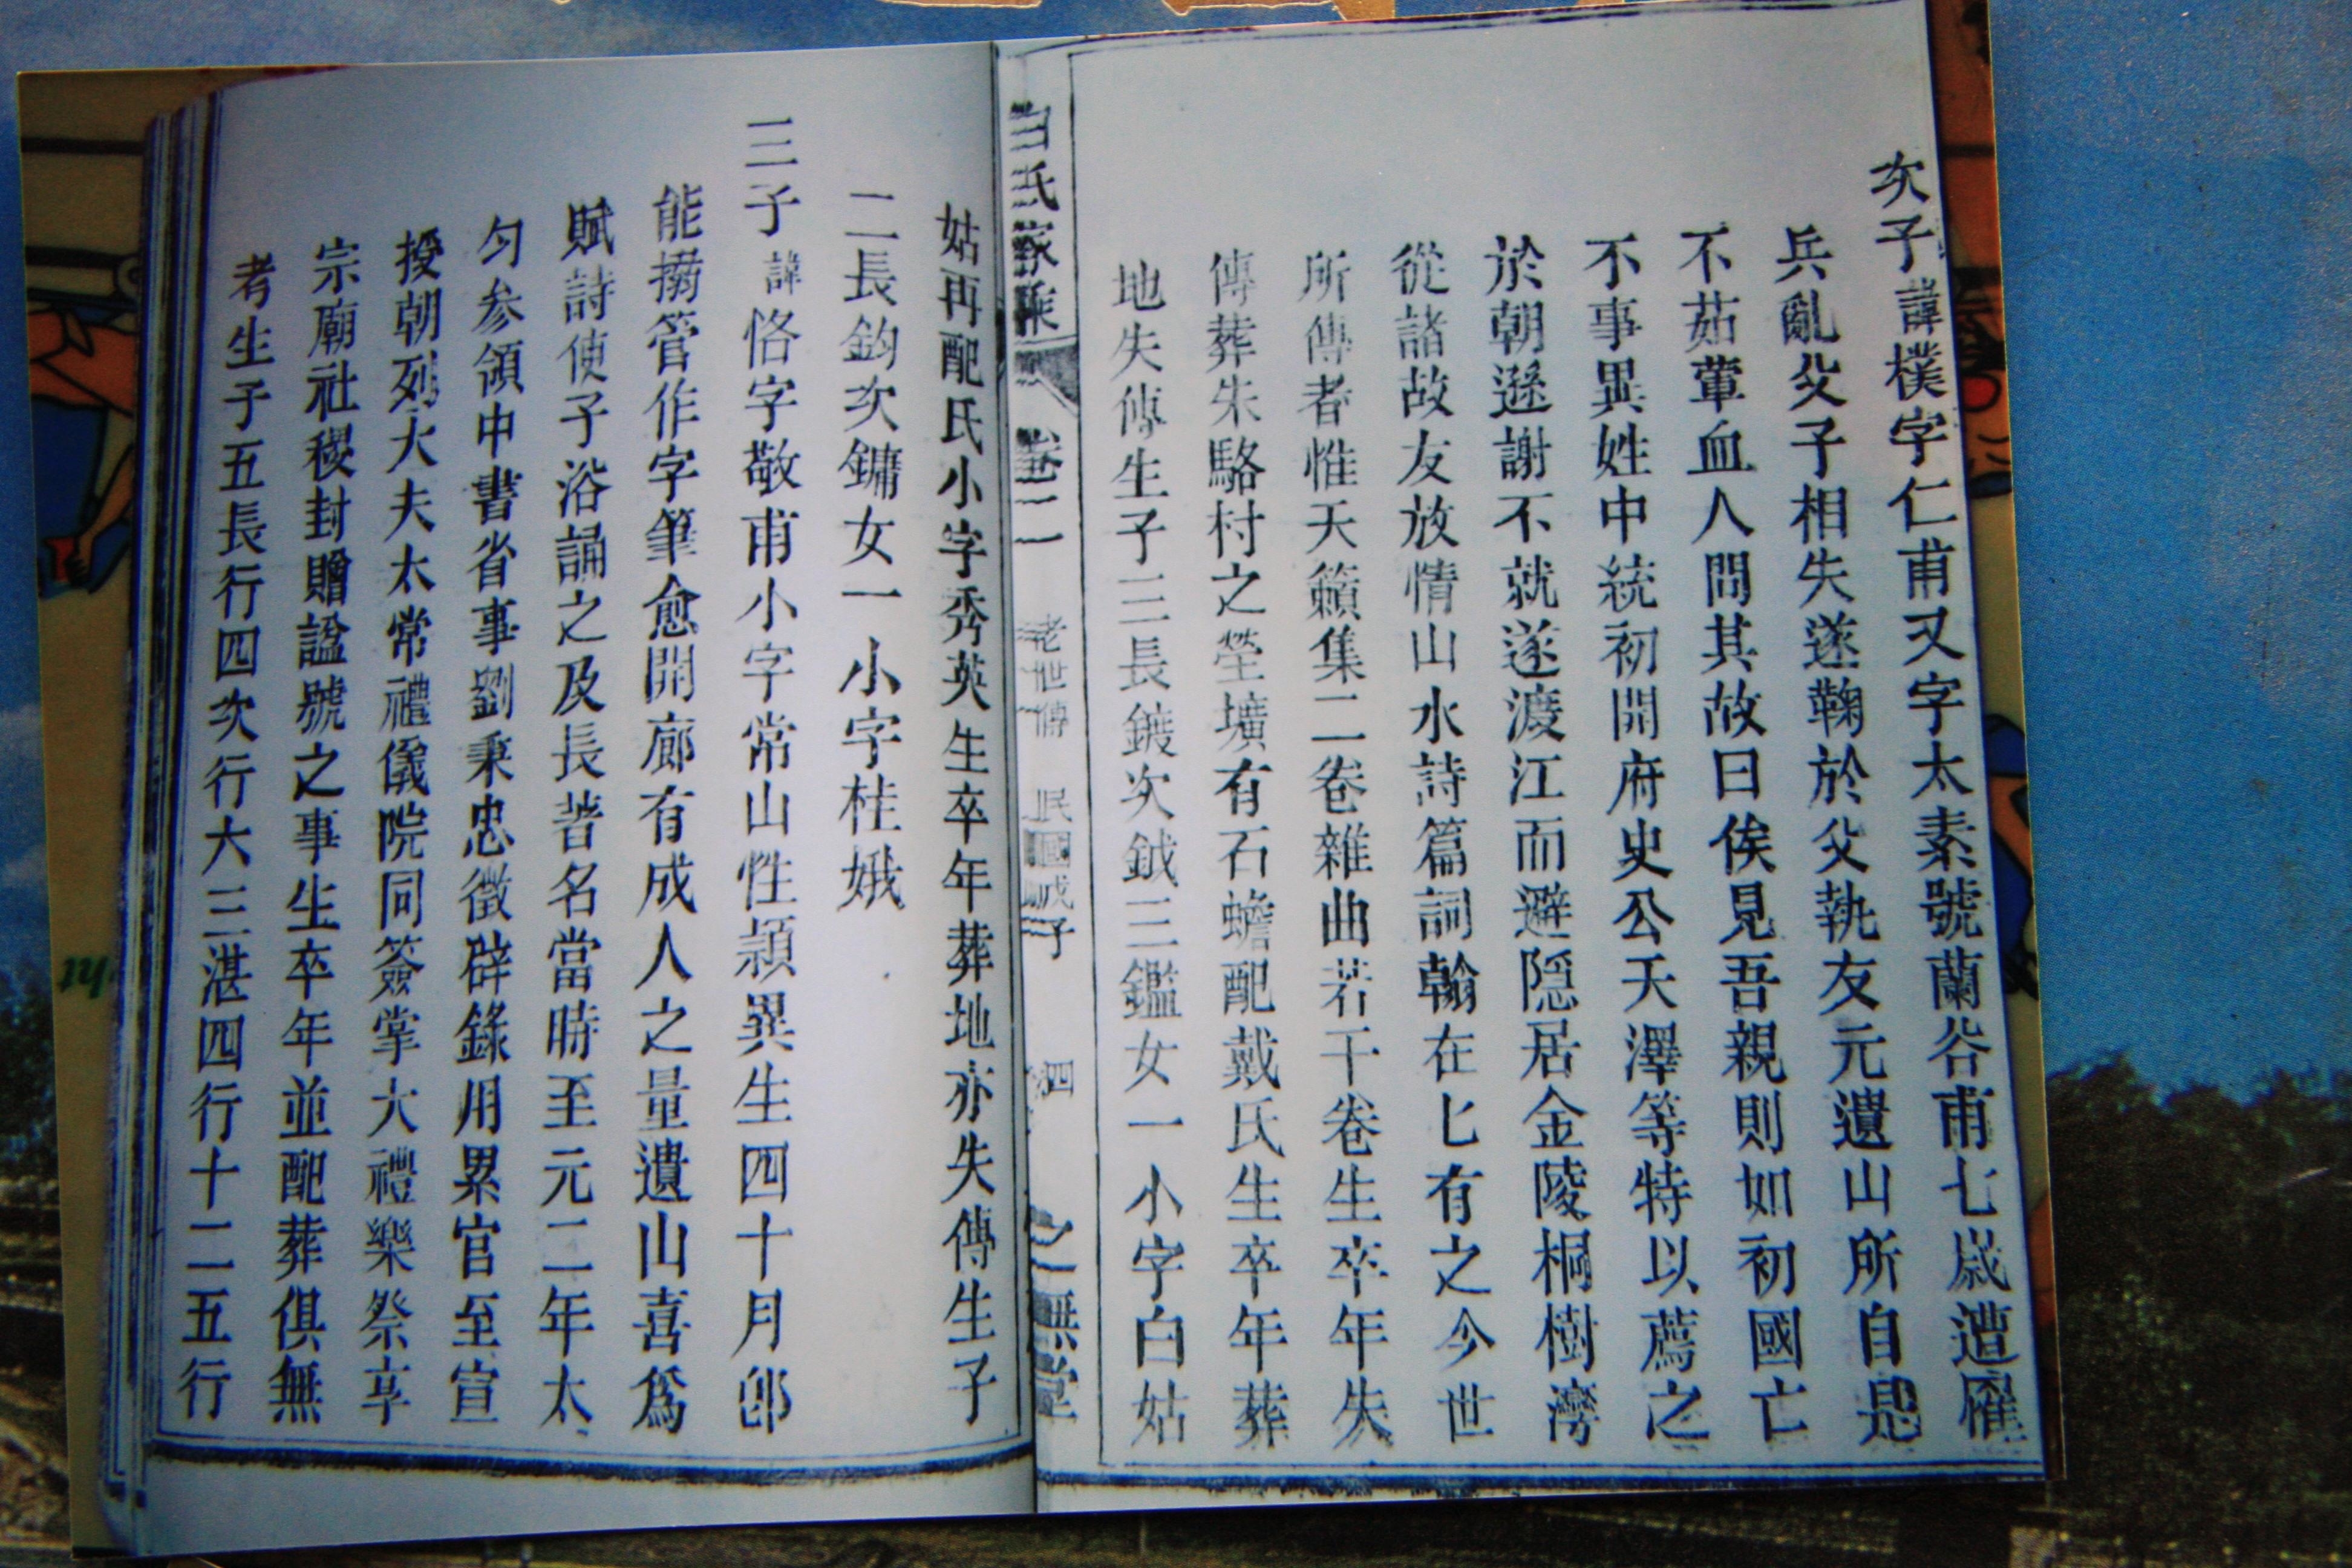 次子諱樸字仁甫又字太素號蘭谷甫七歲遭罹
兵亂父子相失遂鞠於父執友元遺山所自是
不茹葷血人問其故曰俟見吾親則如初國亡
不事異姓中統初開府史公天澤等特以薦之
於朝遜謝不就遂渡江而避隱居金陵桐樹灣
從諸故友放情山水詩篇詞翰在七有之今世
所傳者惟天籟集二卷雜曲若干卷生卒年失
傳葬朱駱村之塋壙有石蟾配戴氏生卒年葬
地失傳生子三長鍍次鉞三鑑女一小字白姑
白氏家乘 卷二 老世傳 民國戊子 四 之無堂
姑再配氏小字秀英生卒年葬地亦失傳生子
二長鈞次鏞女一小字桂娥
三子諱恪字敬甫小字常山性穎異生四十月卽
能搦管作字筆愈開廊有成人之量遺山喜爲
賦詩使子浴誦之及長著名當時至元二年太
匀參領中書省事劉秉忠徵辟錄用累官至宣
授朝列大夫太常禮儀院同簽掌大禮樂祭享
宗廟社稷封贈諡號之事生卒年並配葬俱無
考生子五長行四次行六三湛四行十二五行